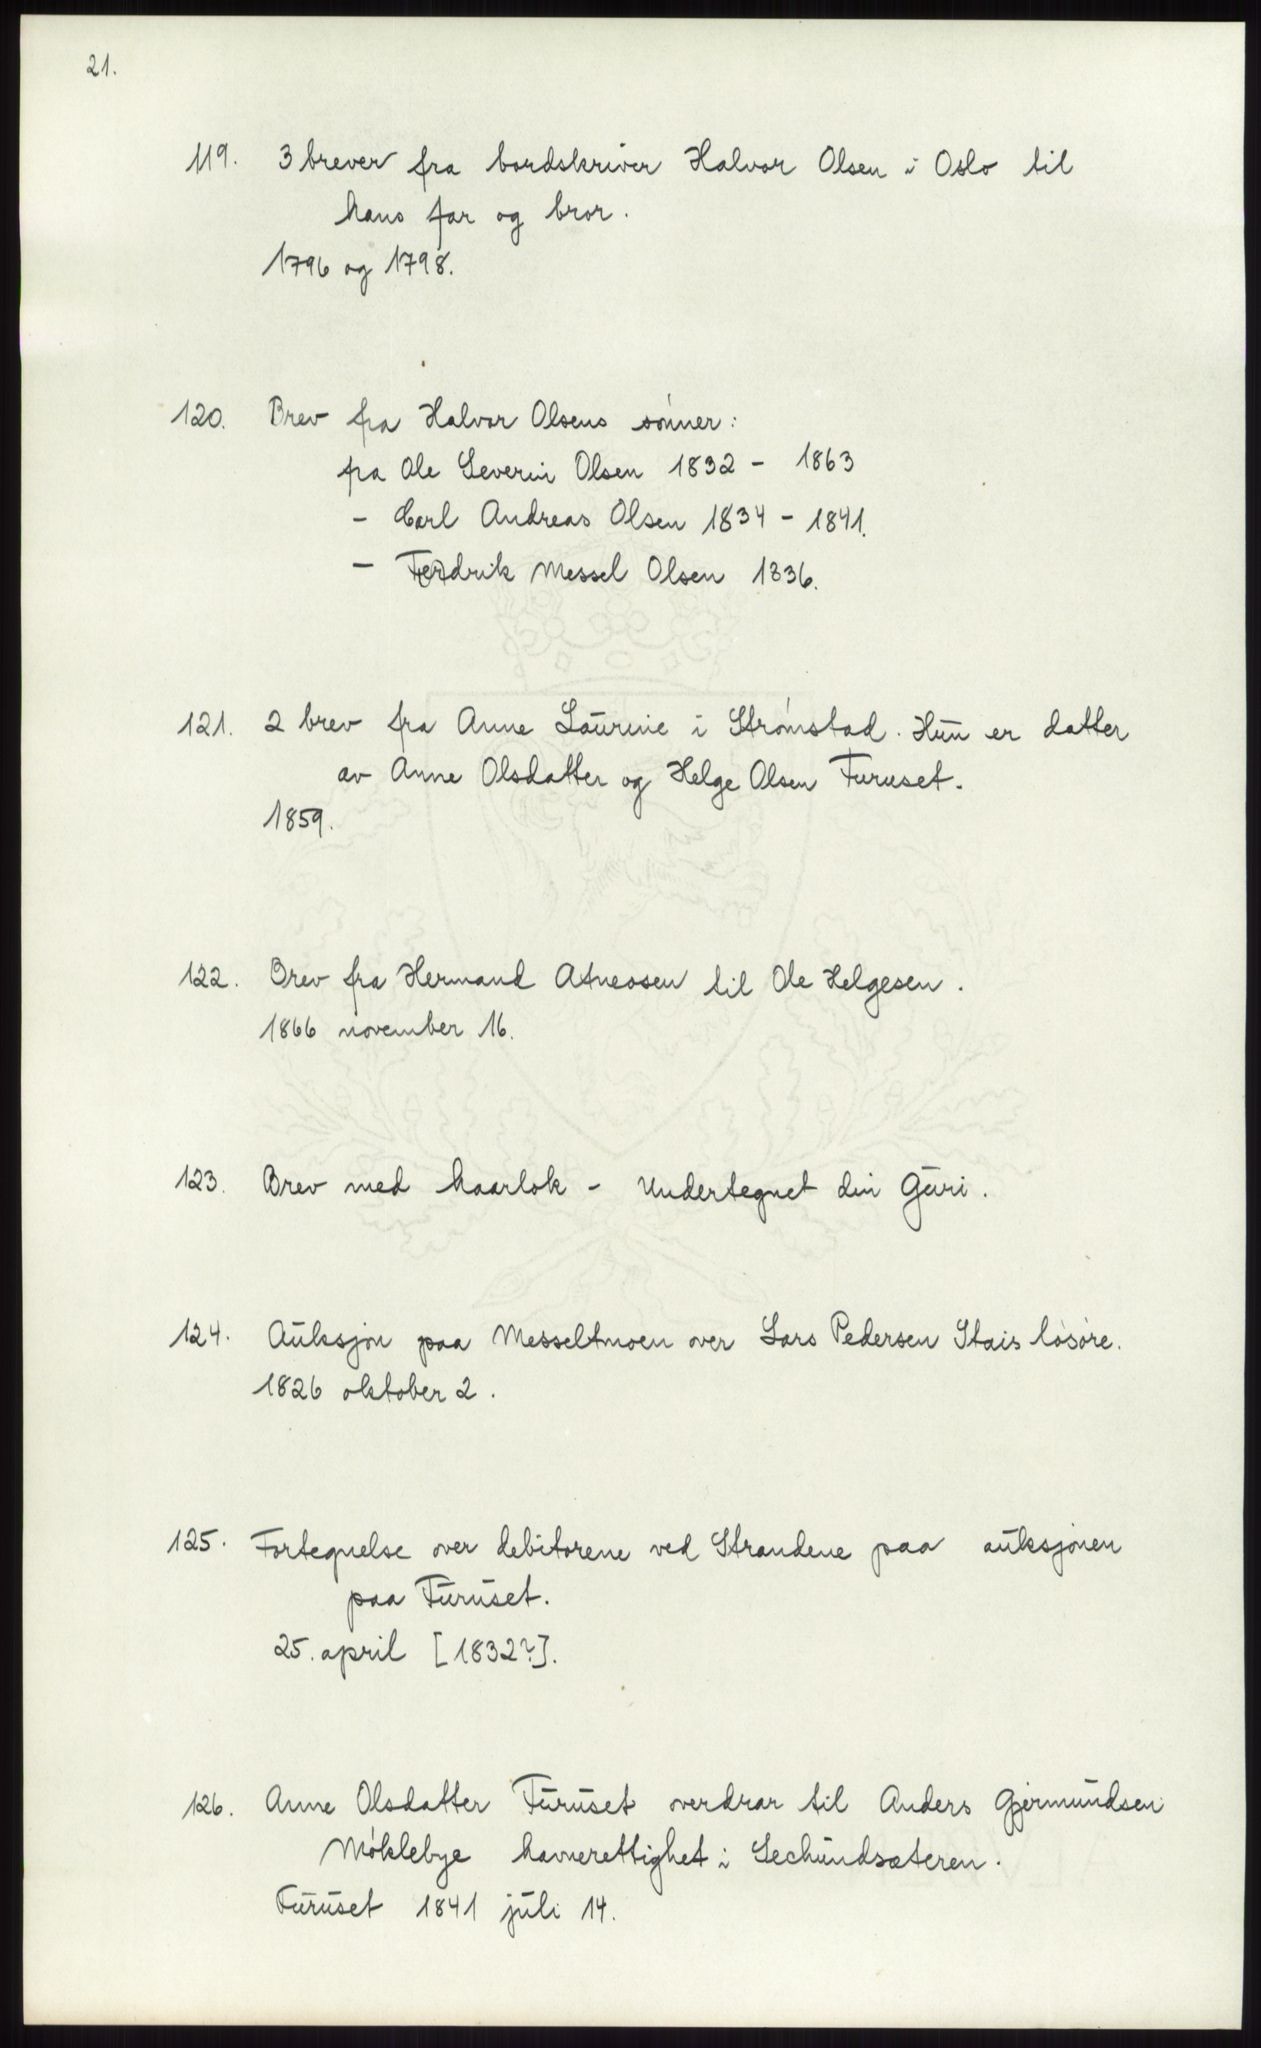 21.
119. 3 brever fra bordskriver Halvor Olsen i Oslo til
hans far og bror.
1796 og 1798.
120. Brev fra Halvor Olsens sönner:
fra Ole Severin Olsen 1832 - 1863
- Carl Andreas Olsen 1834 - 1841.
- Messel Olsen 1836.
121. 2 brev fra Anne Laurine i Strömstad. Hun er datter
av Anne Olsdatter og Helge Olsen Furuset.
1859.
122. Brev fra Hermand Atneosen til Ole Helgesen.
1866 november 16.
123. Brev med haarlok - Undertegnet din Guri.
124. Auksjon paa Messeltmoen over Lars Pedersen Stais lösöre.
1826 oktober 2.
125. Fortegnelse over debitorene ved Strandene paa auksjonen
paa Furuset.
25. april [1832?].
126. Anne Olsdatter Furuset overdrar til Anders Gjermundsen
Möklebye havnerettighet i Sechundsæteren.
Furuset 1841 juli 14.